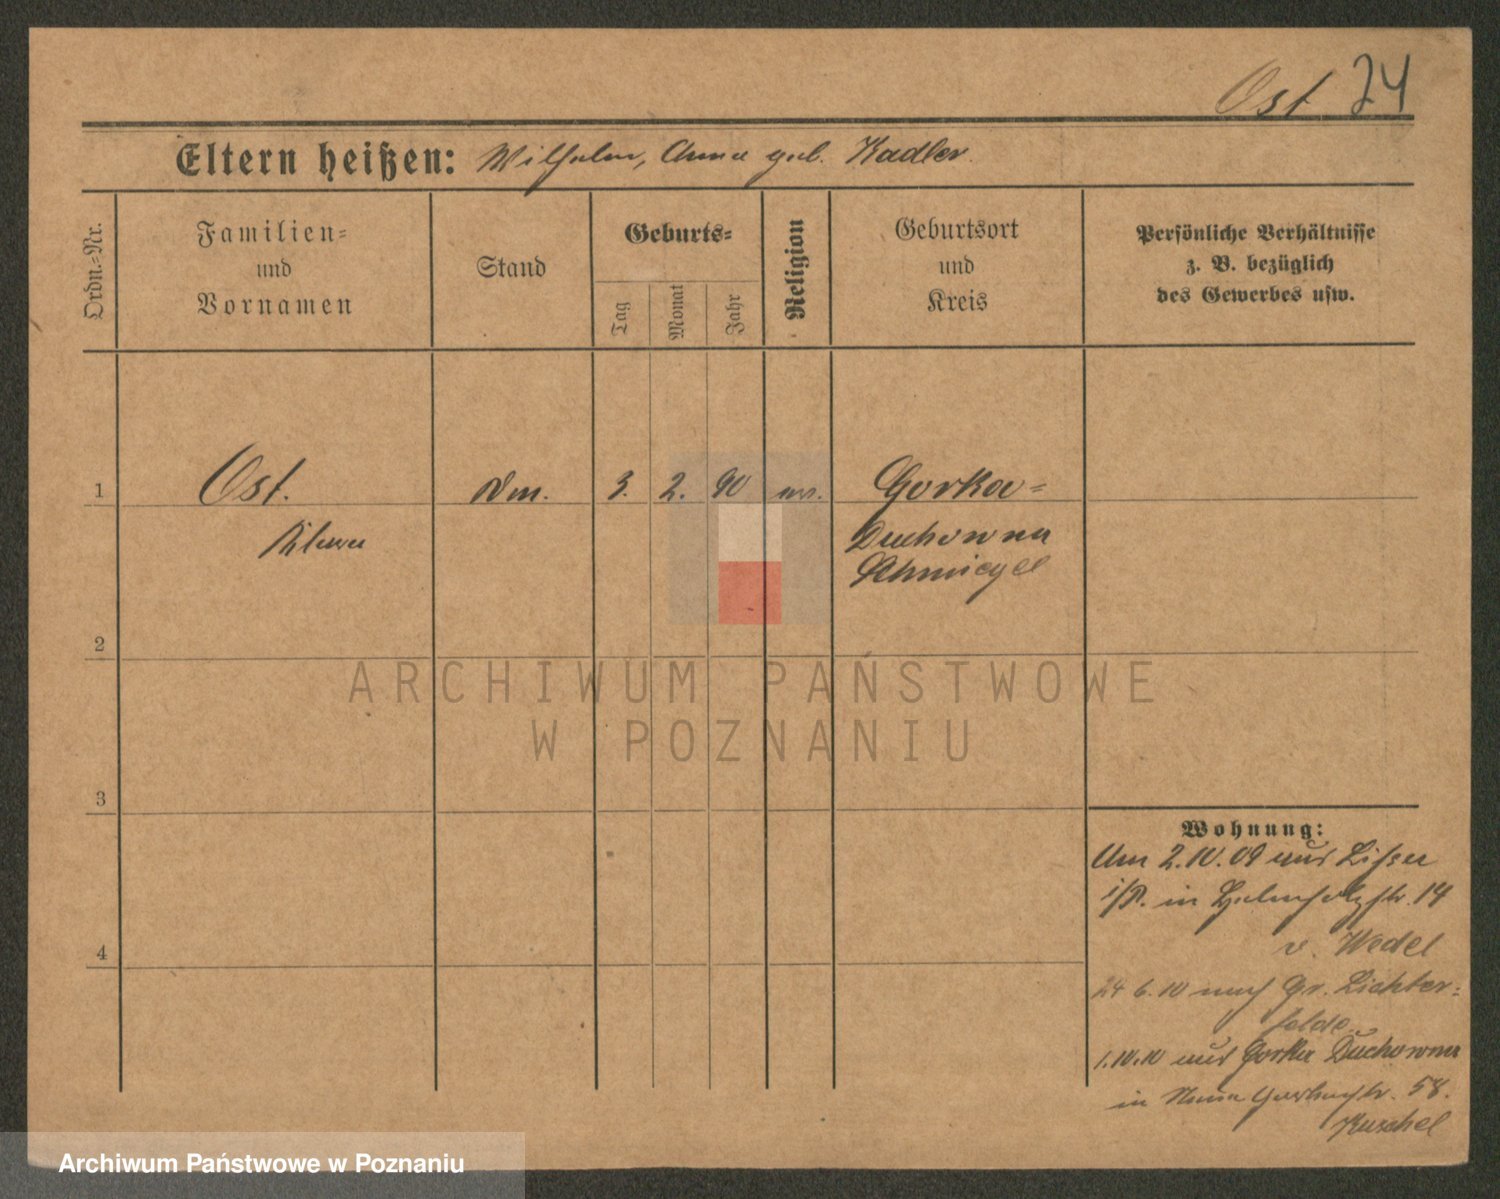 Ost 24
Eltern heißen: Wilhelm, Anna geb. Kadler
Ordn.-Nr.
Familien-
und
Vornamen
Stand
Geburts-
Tag
Monat
Jahr
Religion
Geburtsort
und
Kreis
Persönliche Verhältnisse
z. B. bezüglich
des Gewerbes usw.
1 Ost. 3. 2. 90 Gorka-
Duchowna
Schmiegel
2
ARCHIWUM PAŃSTWOWE
W POZNANIU
3
4
Wohnung:
Am 2.10.09 aus Lissa
i/P. in 14
v. Wedel
24 6.10 nach Gr. Lichter-
felde
1.10.10 aus Gorka Duchowna
in Neue Gartenstr. 58.
Kuschel
Archiwum Państwowe w Poznaniu